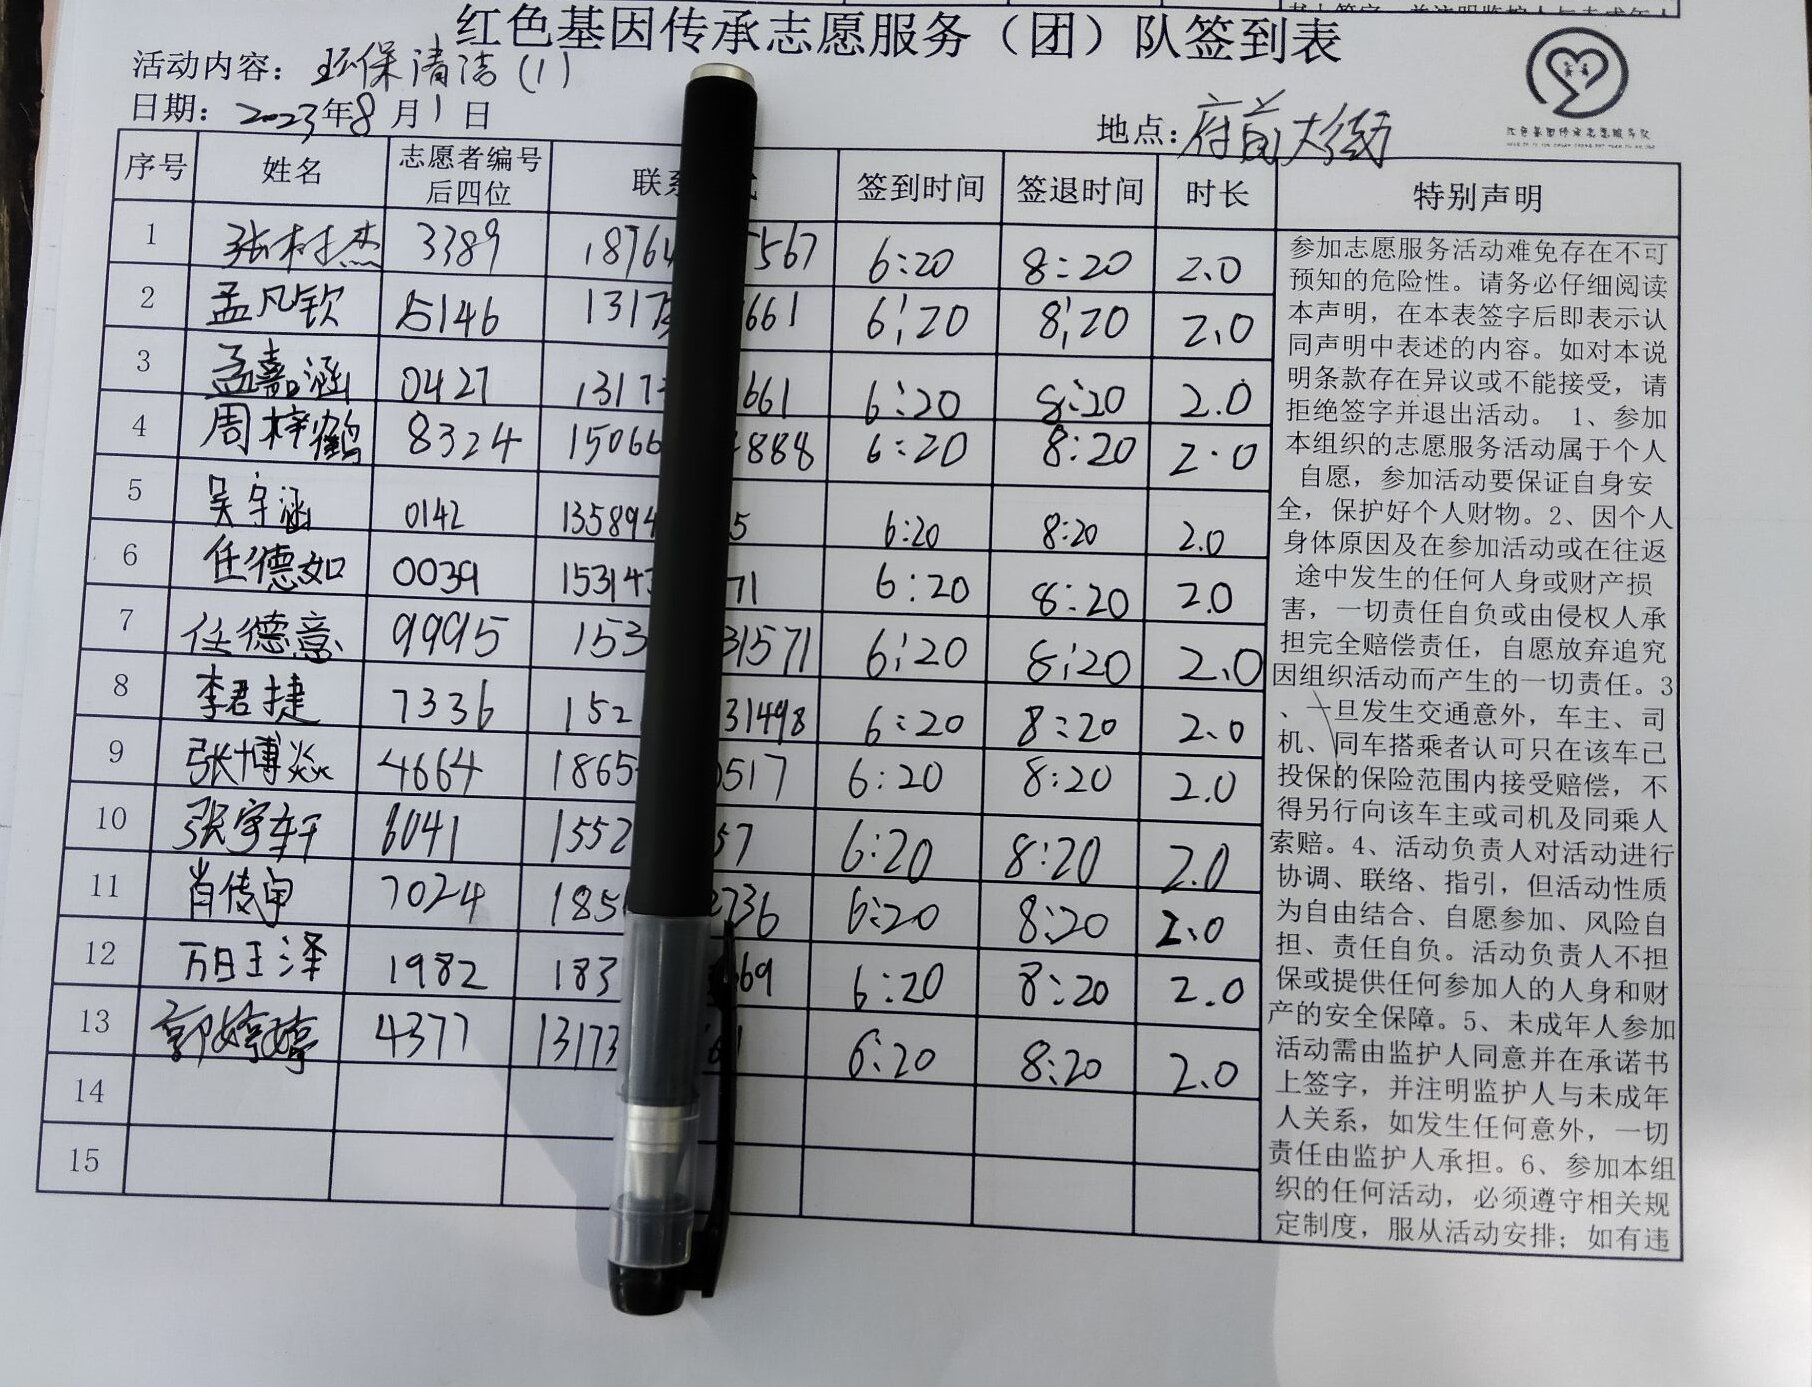 红色基因传承志愿服务（团）队签到表
活动内容：环保清洁(1)
日期：2023年8月1日 地点：府前大街
红色基因传承志愿服务队
序号 姓名 志愿者编号后四位 联系 签到时间 签退时间 时长 特别声明
1 张树杰 3389 18764 567 6:20 8:20 2.0
2 孟凡钦 5146 1317 661 6:20 8:20 2.0
3 孟嘉涵 0427 1317 661 6:20 8:20 2.0
4 周梓鹤 8324 15066 888 6:20 8:20 2.0
5 吴宇涵 0142 135894 5 6:20 8:20 2.0
6 任德如 0039 15314 71 6:20 8:20 2.0
7 任德意 9995 153 31571 6:20 8:20 2.0
8 李君捷 7336 152 31498 6:20 8:20 2.0
9 张博焱 4664 1865 517 6:20 8:20 2.0
10 张宇轩 6041 1552 57 6:20 8:20 2.0
11 肖传 7024 185 2736 6:20 8:20 2.0
12 王泽 1982 183 669 6:20 8:20 2.0
13 郭婷婷 4377 13173 6:20 8:20 2.0
14
15
参加志愿服务活动难免存在不可
预知的危险性。请务必仔细阅读
本声明，在本表签字后即表示认
同声明中表述的内容。如对本说
明条款存在异议或不能接受，请
拒绝签字并退出活动。1、参加
本组织的志愿服务活动属于个人
自愿，参加活动要保证自身安
全，保护好个人财物。2、因个人
身体原因及在参加活动或在往返
途中发生的任何人身或财产损
害，一切责任自负或由侵权人承
担完全赔偿责任，自愿放弃追究
因组织活动而产生的一切责任。3
、一旦发生交通意外，车主、司
机、同车搭乘者认可只在该车已
投保的保险范围内接受赔偿，不
得另行向该车主或司机及同乘人
索赔。4、活动负责人对活动进行
协调、联络、指引，但活动性质
为自由结合、自愿参加、风险自
担、责任自负。活动负责人不担
保或提供任何参加人的人身和财
产的安全保障。5、未成年人参加
活动需由监护人同意并在承诺书
上签字，并注明监护人与未成年
人关系，如发生任何意外，一切
责任由监护人承担。6、参加本组
织的任何活动，必须遵守相关规
定制度，服从活动安排；如有违